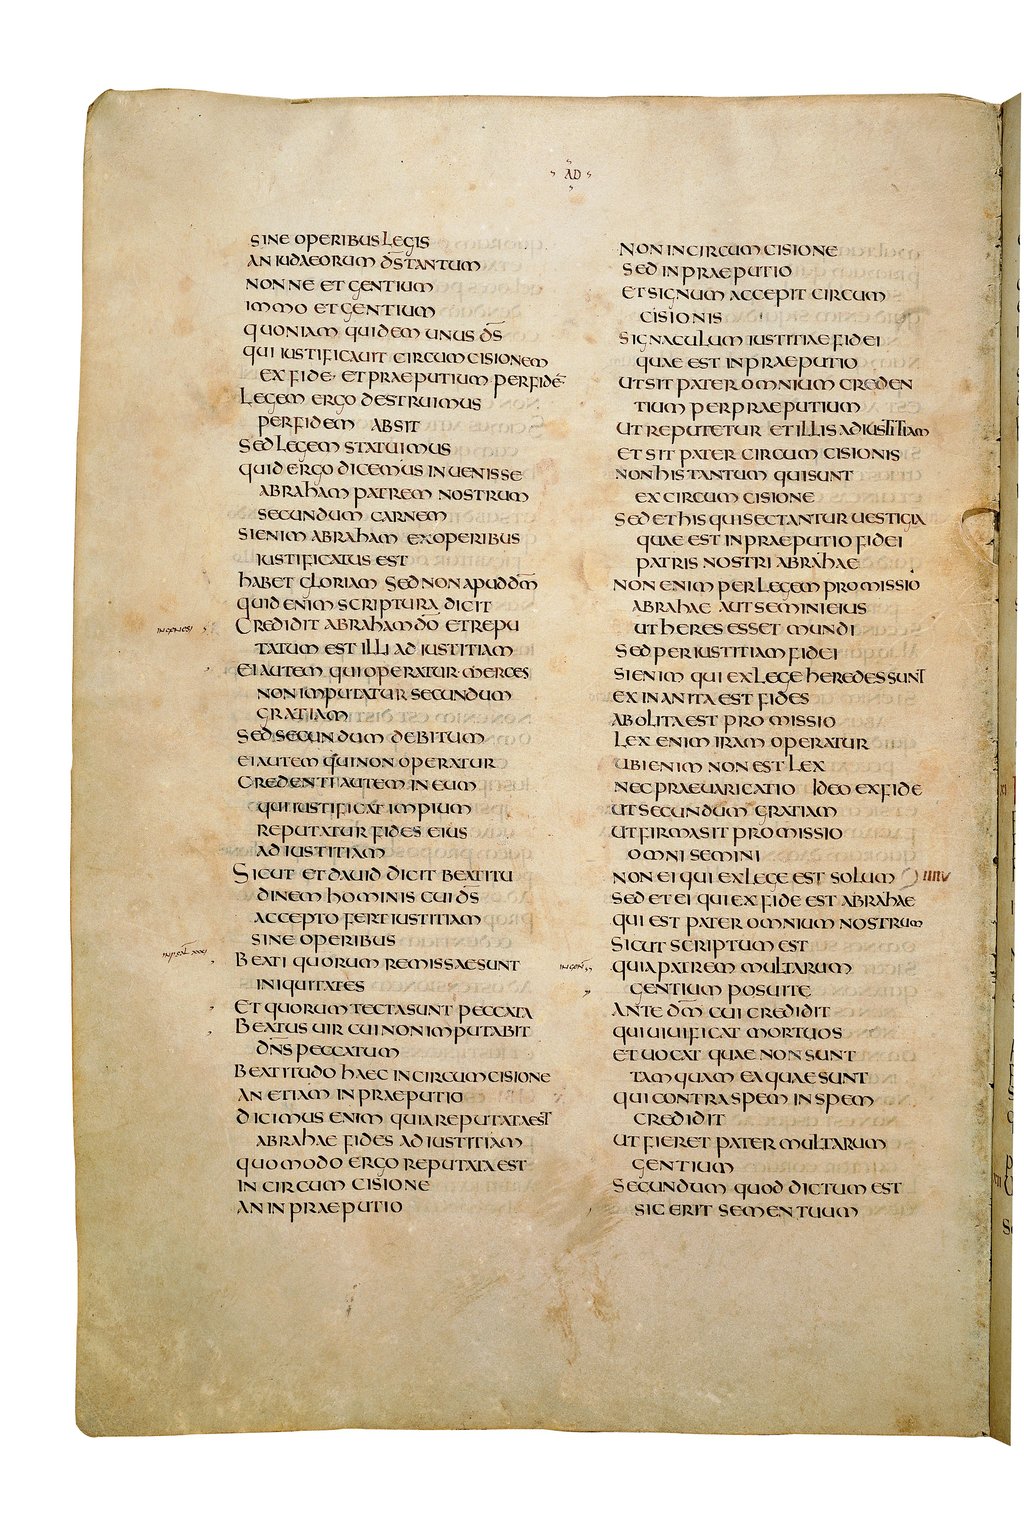 AD
SINE OPERIBUS LEGIS
AN IUDAEORUM D̅S̅ TANTUM
NONNE ET GENTIUM
IMMO ET GENTIUM
QUONIAM QUIDEM UNUS D̅S̅
QUI IUSTIFICAUIT CIRCUMCISIONEM
EX FIDE ET PRAEPUTIUM PER FIDE̅
LEGEM ERGO DESTRUIMUS
PER FIDEM ABSIT
SED LEGEM STATUIMUS
QUID ERGO DICEMUS INUENISSE
ABRAHAM PATREM NOSTRUM
SECUNDUM CARNEM
SI ENIM ABRAHAM EX OPERIBUS
IUSTIFICATUS EST
HABET GLORIAM SED NON APUD D̅M̅
QUID ENIM SCRIPTURA DICIT
IN GENESI
CREDIDIT ABRAHAM D̅O̅ ET REPU
TATUM EST ILLI AD IUSTITIAM
EI AUTEM QUI OPERATUR MERCES
NON IMPUTATUR SECUNDUM
GRATIAM
SED SECUNDUM DEBITUM
EI AUTEM QUI NON OPERATUR
CREDENTI AUTEM IN EUM
QUI IUSTIFICAT IMPIUM
REPUTATUR FIDES EIUS
AD IUSTITIAM
SICUT ET DAUID DICIT BEATITU
DINEM HOMINIS CUI D̅S̅
ACCEPTO FERT IUSTITIAM
SINE OPERIBUS
IN PSAL XXXI
BEATI QUORUM REMISSAE SUNT
INIQUITATES
ET QUORUM TECTA SUNT PECCATA
BEATUS UIR CUI NON IMPUTABIT
D̅N̅S̅ PECCATUM
BEATITUDO HAEC IN CIRCUMCISIONE
AN ETIAM IN PRAEPUTIO
DICIMUS ENIM QUIA REPUTATA EST
ABRAHAE FIDES AD IUSTITIAM
QUOMODO ERGO REPUTATA EST
IN CIRCUMCISIONE
AN IN PRAEPUTIO
NON IN CIRCUMCISIONE
SED IN PRAEPUTIO
ET SIGNUM ACCEPIT CIRCUM
CISIONIS
SIGNACULUM IUSTITIAE FIDEI
QUAE EST IN PRAEPUTIO
UT SIT PATER OMNIUM CREDEN
TIUM PER PRAEPUTIUM
UT REPUTETUR ET ILLIS AD IUSTITIAM
ET SIT PATER CIRCUMCISIONIS
NON HIS TANTUM QUI SUNT
EX CIRCUMCISIONE
SED ET HIS QUI SECTANTUR UESTIGIA
QUAE EST IN PRAEPUTIO FIDEI
PATRIS NOSTRI ABRAHAE
NON ENIM PER LEGEM PROMISSIO
ABRAHAE AUT SEMINI EIUS
UT HERES ESSET MUNDI
SED PER IUSTITIAM FIDEI
SI ENIM QUI EX LEGE HEREDES SUNT
EXINANITA EST FIDES
ABOLITA EST PROMISSIO
LEX ENIM IRAM OPERATUR
UBI ENIM NON EST LEX
NEC PRAEUARICATIO IDEO EX FIDE
UT SECUNDUM GRATIAM
UT FIRMA SIT PROMISSIO
OMNI SEMINI
NON EI QUI EX LEGE EST SOLUM
SED ET EI QUI EX FIDE EST ABRAHAE
QUI EST PATER OMNIUM NOSTRUM
SICUT SCRIPTUM EST
IN GEN
QUIA PATREM MULTARUM
GENTIUM POSUI TE
ANTE D̅M̅ CUI CREDIDIT
QUI UIUIFICAT MORTUOS
ET UOCAT QUAE NON SUNT
TAMQUAM EA QUAE SUNT
QUI CONTRA SPEM IN SPEM
CREDIDIT
UT FIERET PATER MULTARUM
GENTIUM
SECUNDUM QUOD DICTUM EST
SIC ERIT SEMEN TUUM